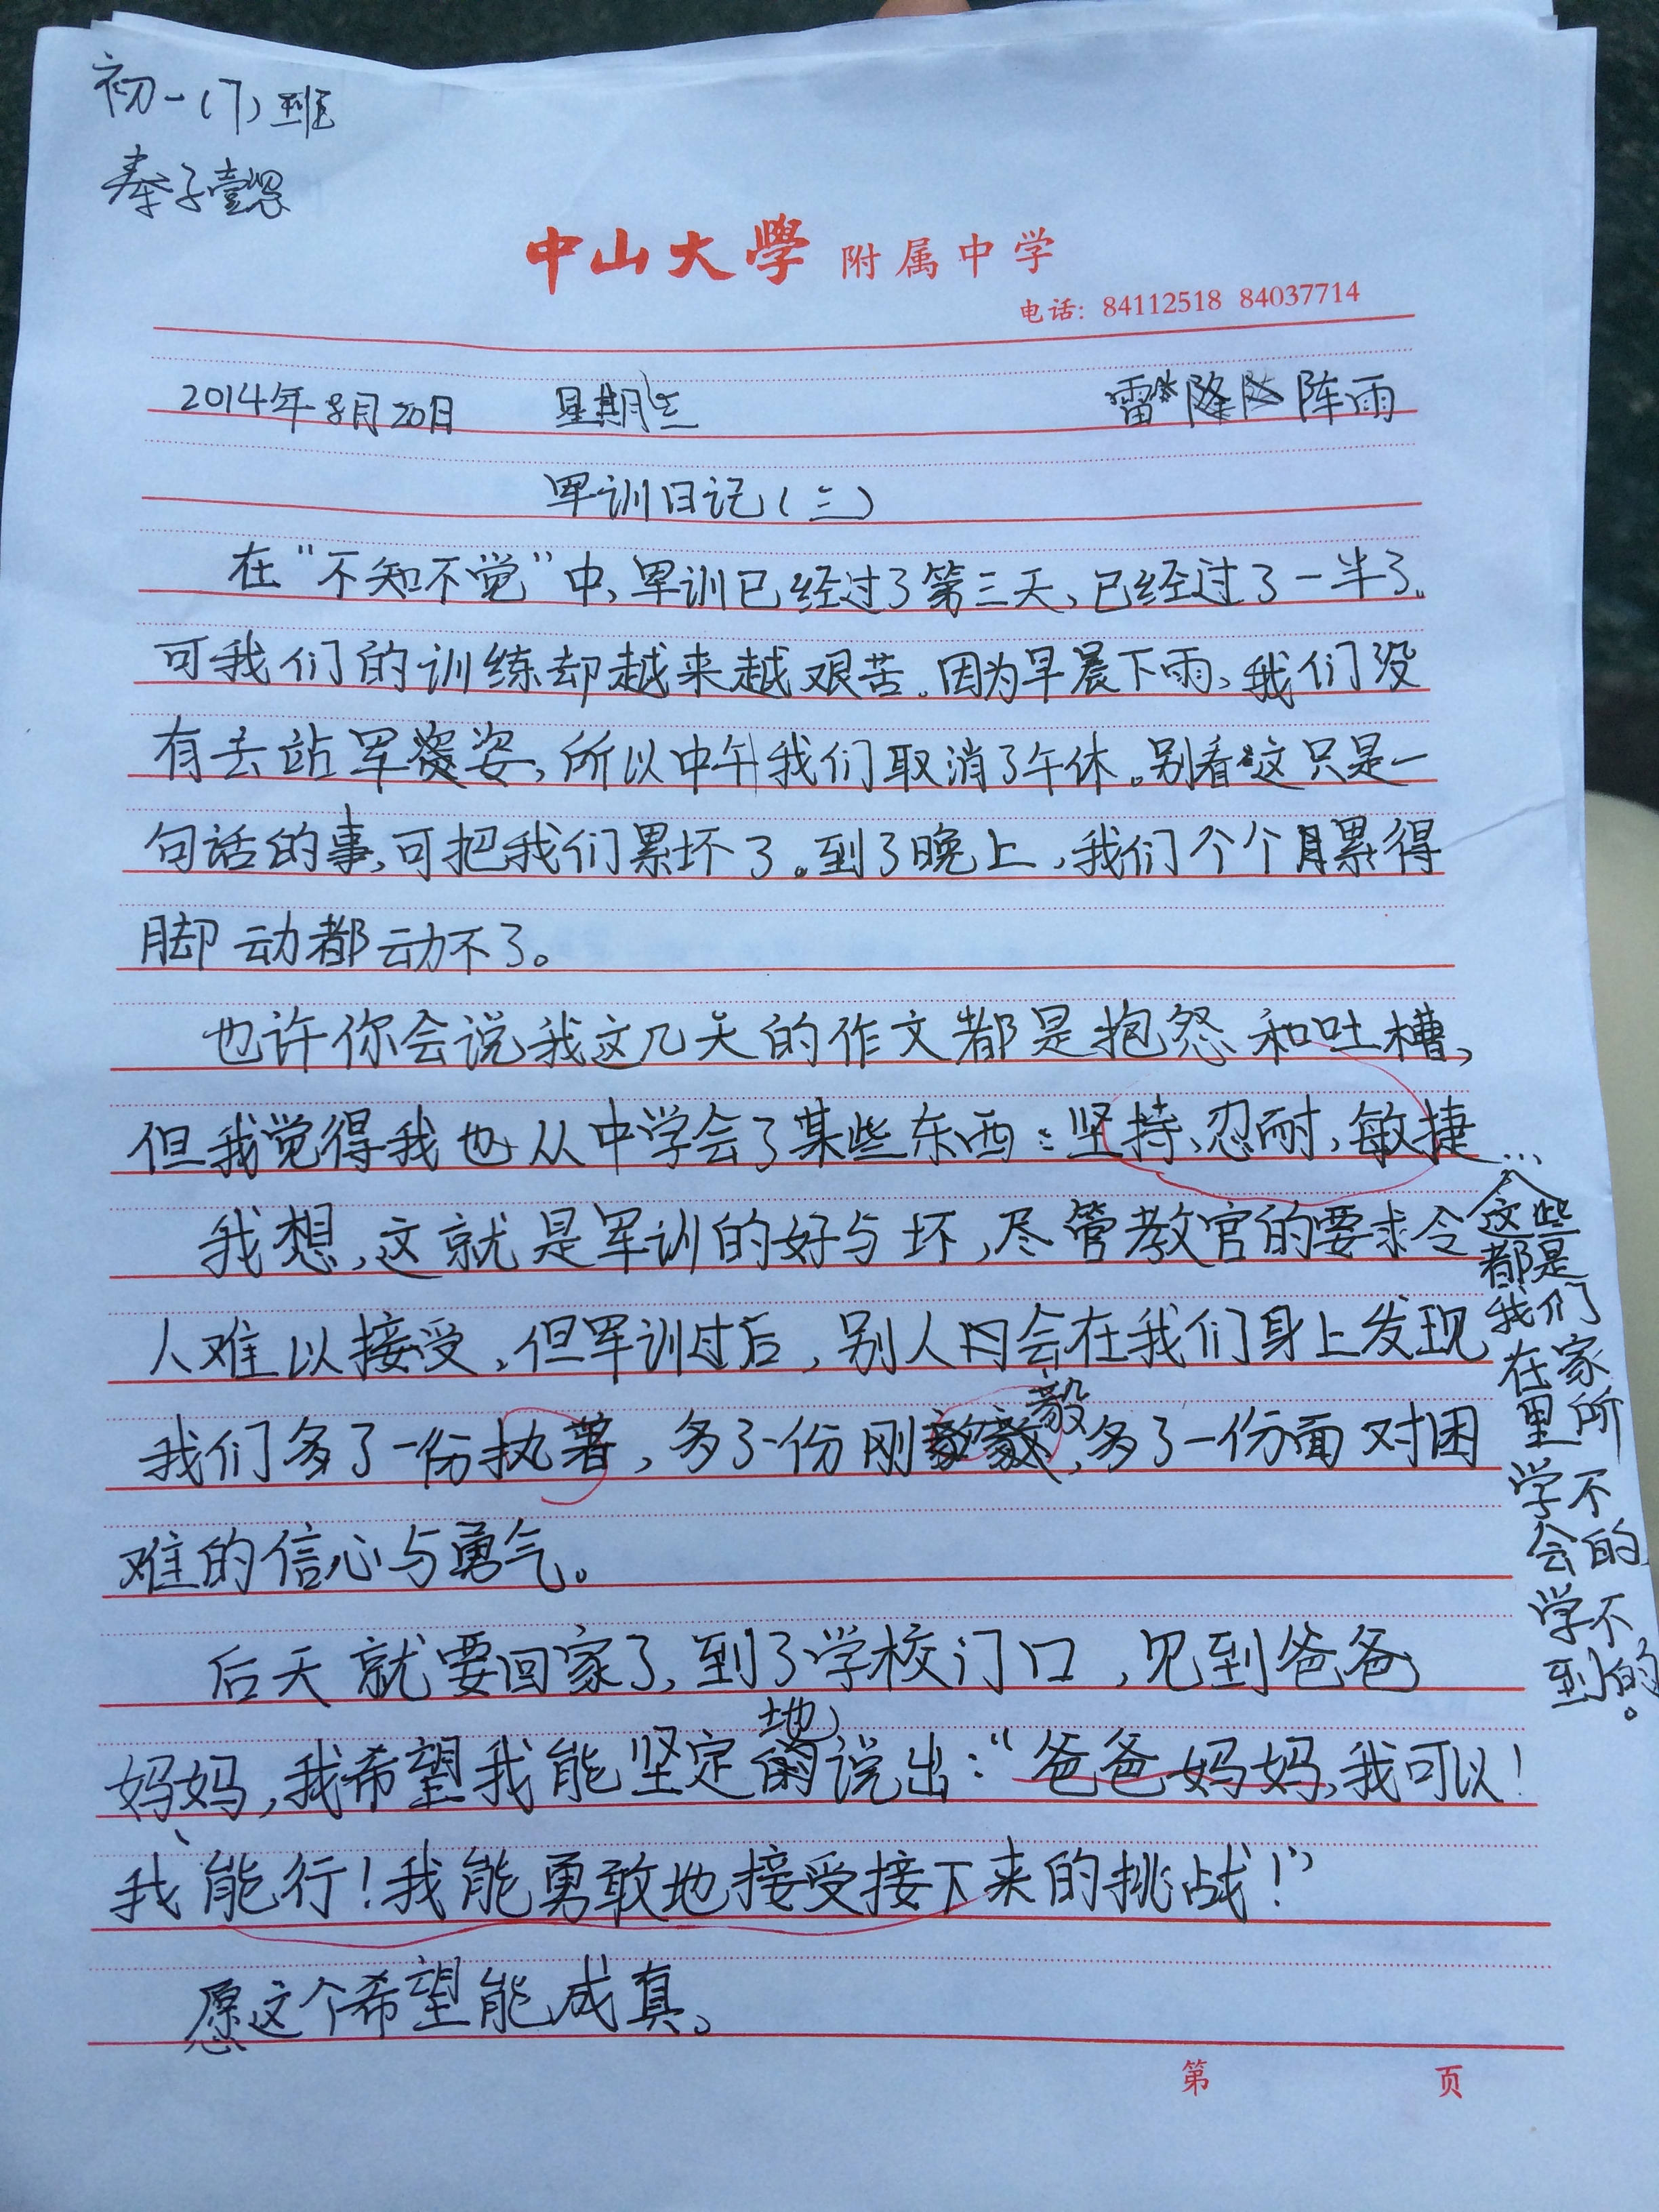 初一(7)班
中山大學 附属中学
电话: 84112518 84037714
2014年8月20日 星期三 雷阵雨
军训日记(三)
在“不知不觉”中,军训已经过了第三天,已经过了一半了。
可我们的训练却越来越艰苦。因为早晨下雨,我们没
有去站军姿,所以中午我们取消了午休。别看这只是一
句话的事,可把我们累坏了。到了晚上,我们个个累得
脚动都动不了。
也许你会说我这几天的作文都是抱怨和吐槽,
但我觉得我也从中学会了某些东西:坚持、忍耐,敏捷…
这些
都是
我们
在家
里所
学不
会的
学不
到的。
我想,这就是军训的好与坏,尽管教官的要求令
人难以接受,但军训过后,别人会在我们身上发现
我们多了一份执著,多了一份刚毅,多了一份面对困
难的信心与勇气。
后天就要回家了,到了学校门口,见到爸爸
妈妈,我希望我能坚定地说出:“爸爸妈妈,我可以!
我能行!我能勇敢地接受接下来的挑战!”
愿这个希望能成真。
第 页